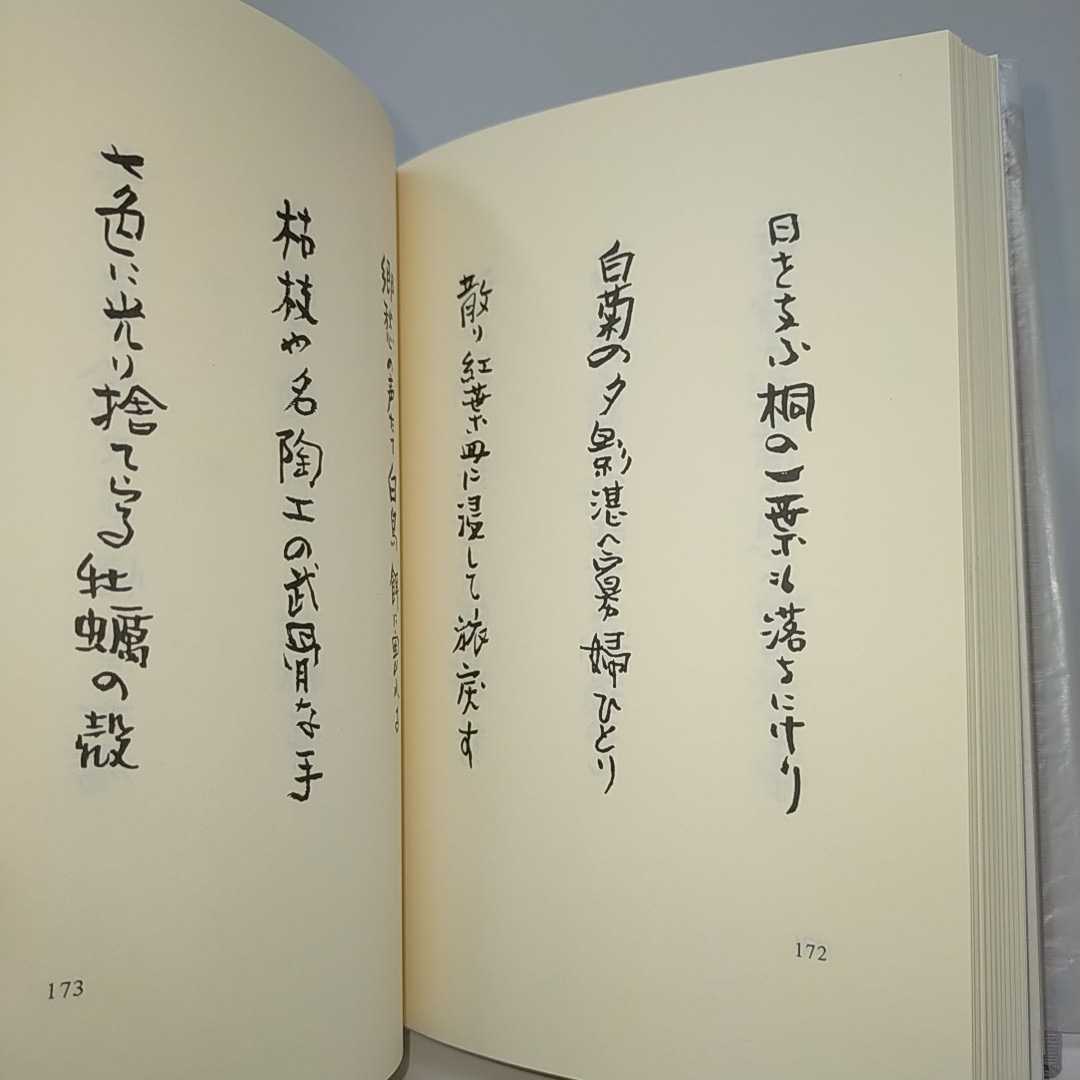 日を支ふ桐の一葉も落ちにけり
白菊の夕影湛へ寡婦ひとり
散り紅葉皿に浸して旅戻す
172
郷愁の声たて白鳥餌に
枯枝や名陶工の武骨な手
七色に光り捨てらる牡蠣の殻
173